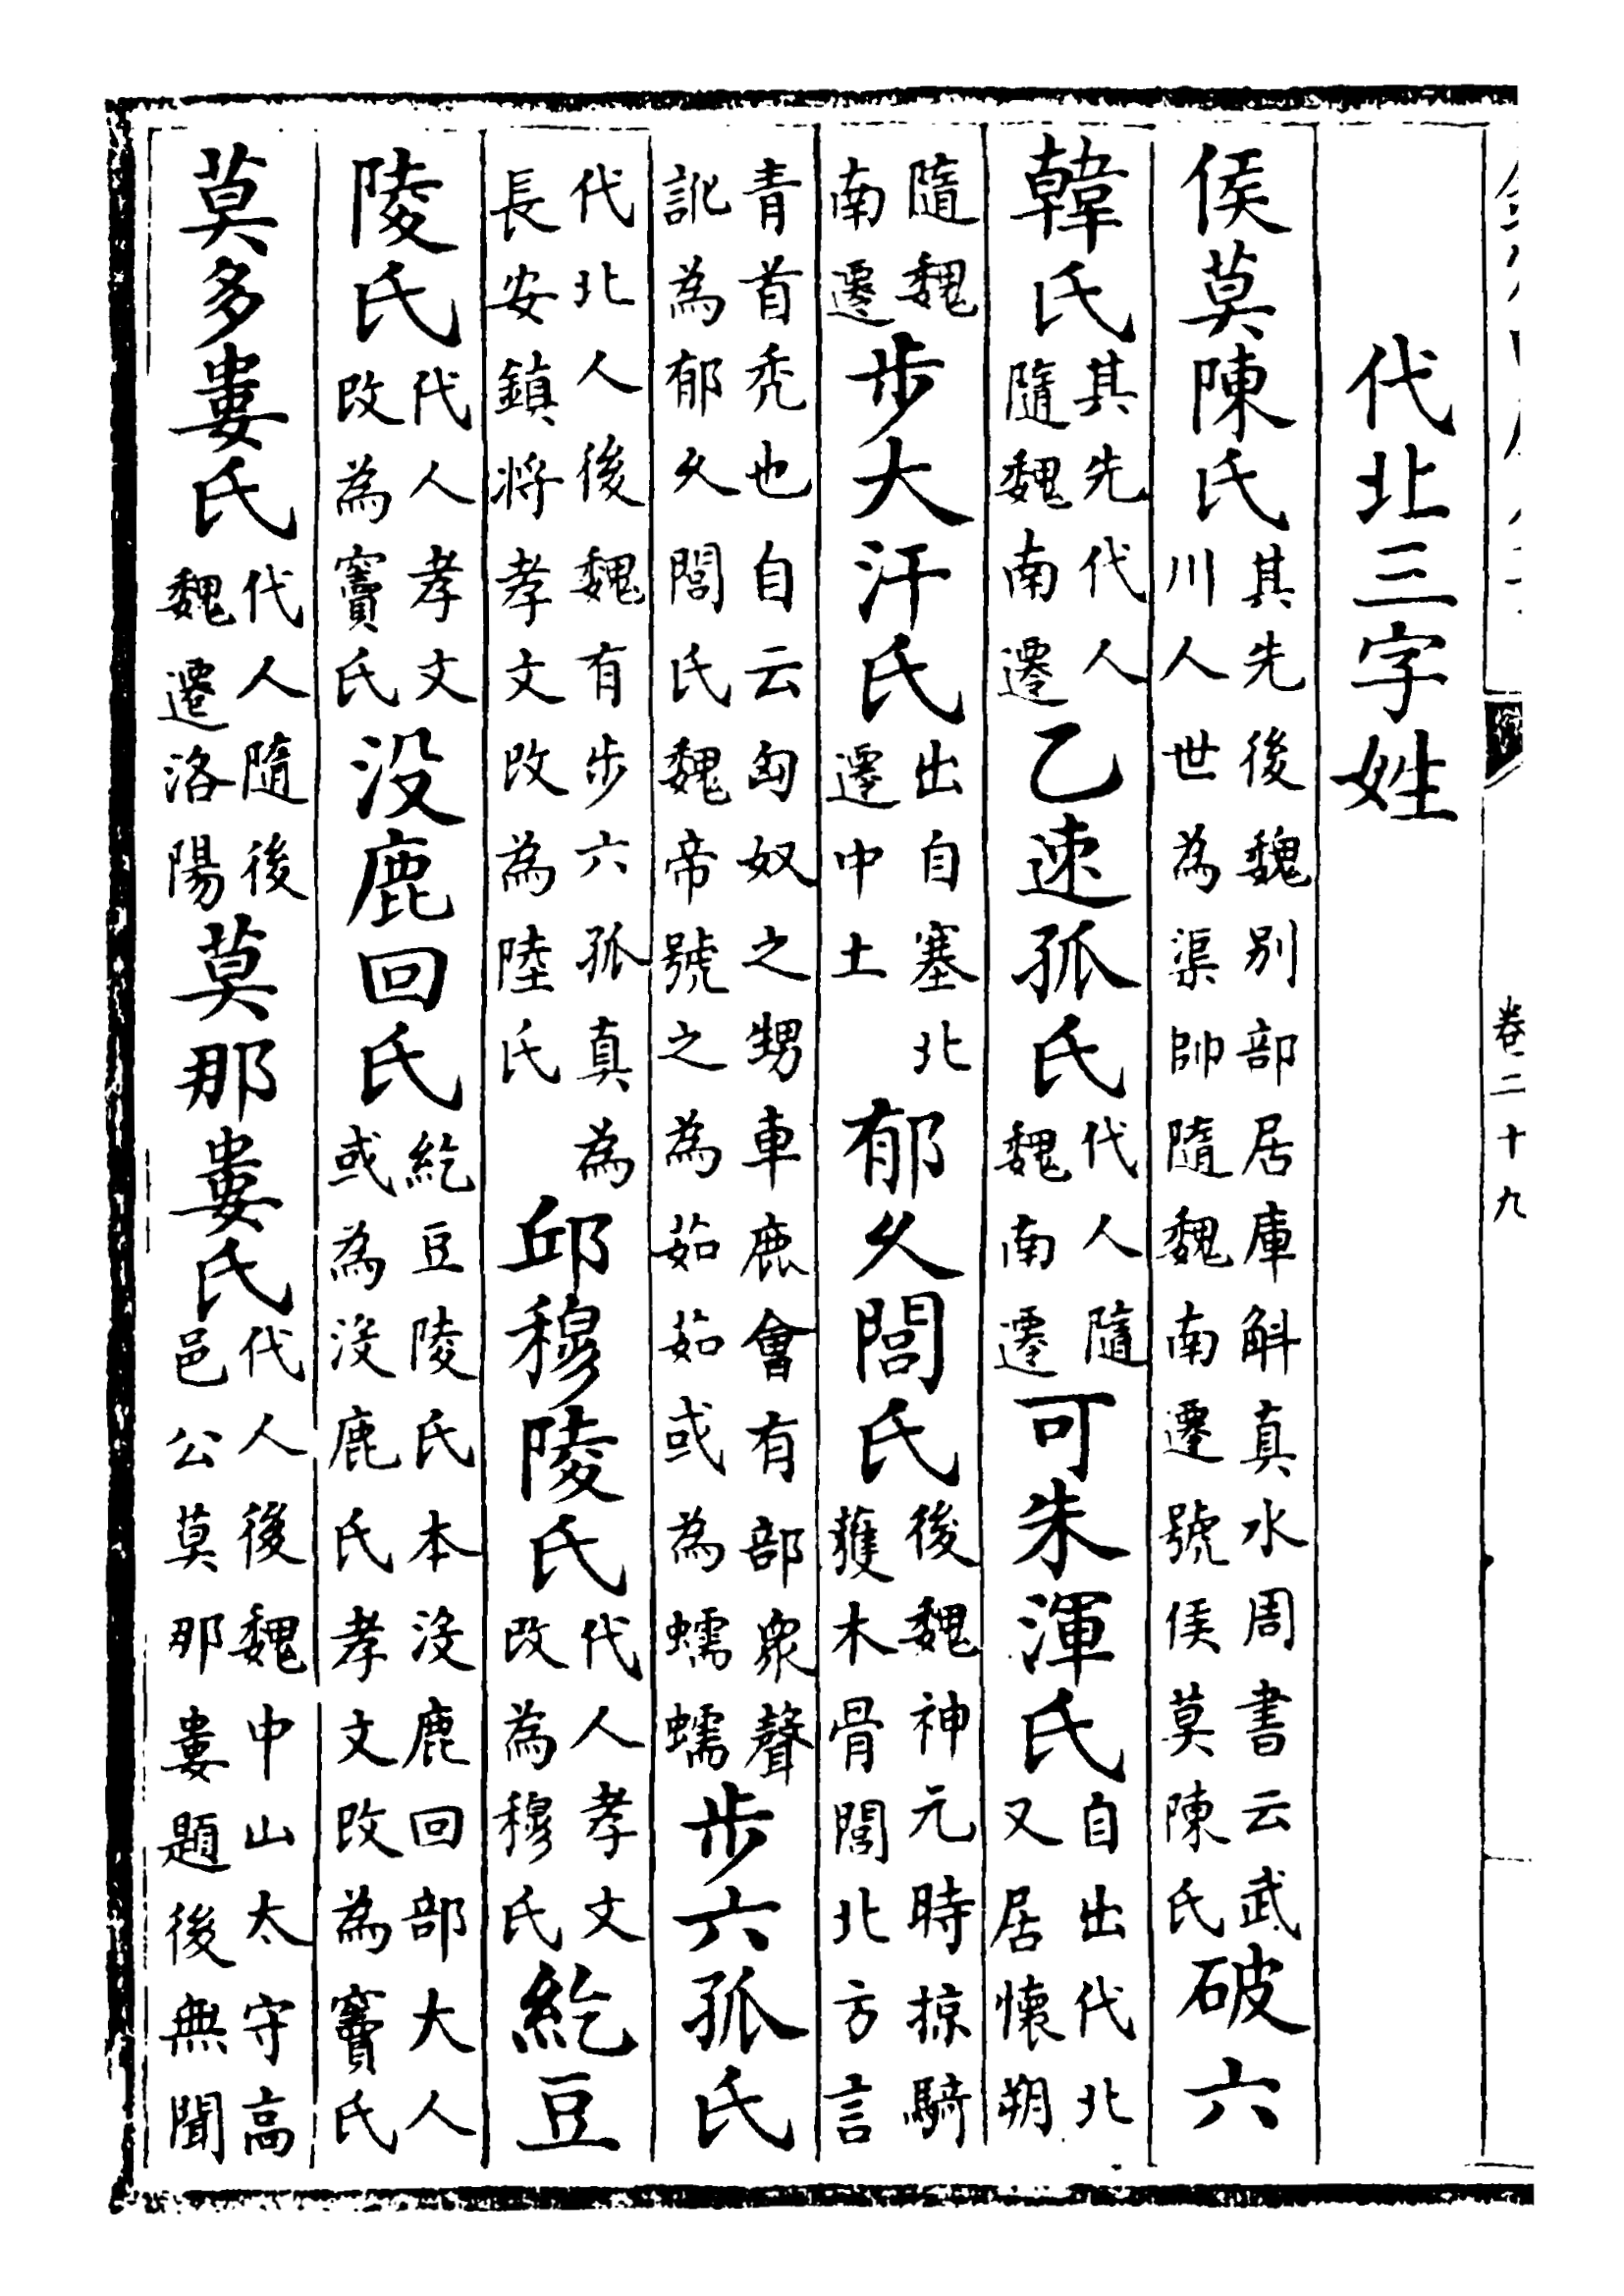 卷二十九
代北三字姓
侯莫陳氏其先後魏別部居庫斛真水周書云武川人世為渠帥隨魏南遷號侯莫陳氏破六
韓氏其先代人隨魏南遷乙速孤氏代人隨魏南遷可朱渾氏自出代北又居懷朔
隨魏南遷步大汗氏出自塞北遷中土郁久閭氏後魏神元時掠騎獲木骨閭北方言
青首禿也自云匈奴之甥車鹿會有部衆聲訛為郁久閭氏魏帝號之為茹茹或為蠕蠕步六孤氏
代北人後魏有步六孤真為長安鎮將孝文改為陸氏邱穆陵氏代人孝文改為穆氏紇豆
陵氏代人孝文改為竇氏没鹿回氏紇豆陵氏本没鹿回部大人或為没鹿氏孝文改為竇氏
莫多婁氏代人隨後魏遷洛陽莫那婁氏代人後魏中山太守高邑公莫那婁題後無聞